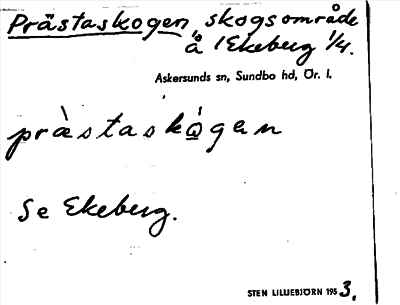 Prästaskogen, skogsområde
å /Ekeberg 1/4.
Askersunds sn, Sundbo hd, Ör. l.
præ̀staskó̱gen
Se Ekeberg.
STEN LILLIEBJÖRN 1953.